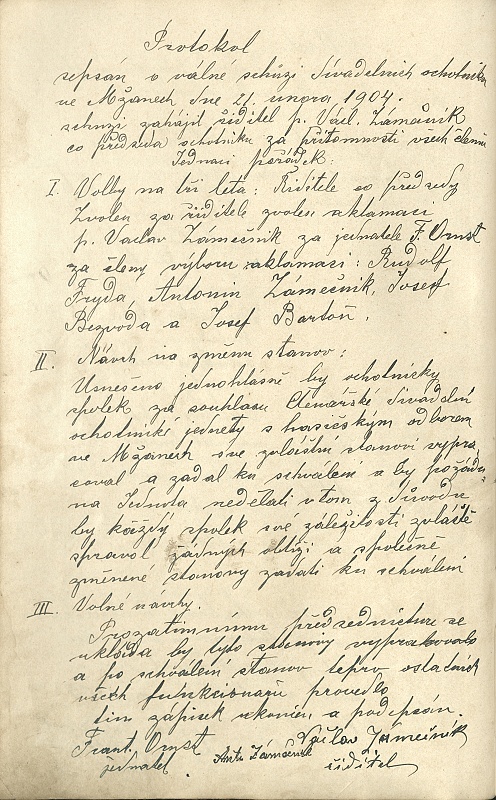 Protokol
sepsán o válné schůzi divadelních ochotníků
ve Mžanech dne 21. února 1904.
schuzi zahájil řiditel p. Václ. Zámečník
co předseda ochotníku za přítomnosti všech členu
Jednací pořádek:
I. Volby na tři leta: Řiditele co předsedy
Zvolen za řiditele zvolen aklamací
p. Vaclav Zámečník za jednatele F. Ornst
za členy výboru aklamací: Rudolf
Fryda, Antonin Zámečník, Josef
Bezvoda a Josef Bartoň.
II. Návrh na změnu stanov:
Usneseno jednohlásně by ochotnický
spolek za souhlasu Čtenářské divadelní
ochotnické jednoty s hasičským odborem
ve Mžanech své zvláštní stanovi vypra
coval a zadal ku schválení a by požádav
na Jednota nedělali v tom z důvodu
by každý spolek své záležitosti zvláště
spravol žádných obtíží a společně
změnené stanovy zadati ku schválení
III. Volné návrhy.
Prozatimnímu předsednictvu se
ukládá by tyto stanovy vypracovalo
a po schválení stanov teprv ostatních
všech funkcionařů provedlo
tím zápisek ukončen a podepsán
Frant. Ornst
jednatel
Ant. Zámečník
Václav Zámečník
řiditel